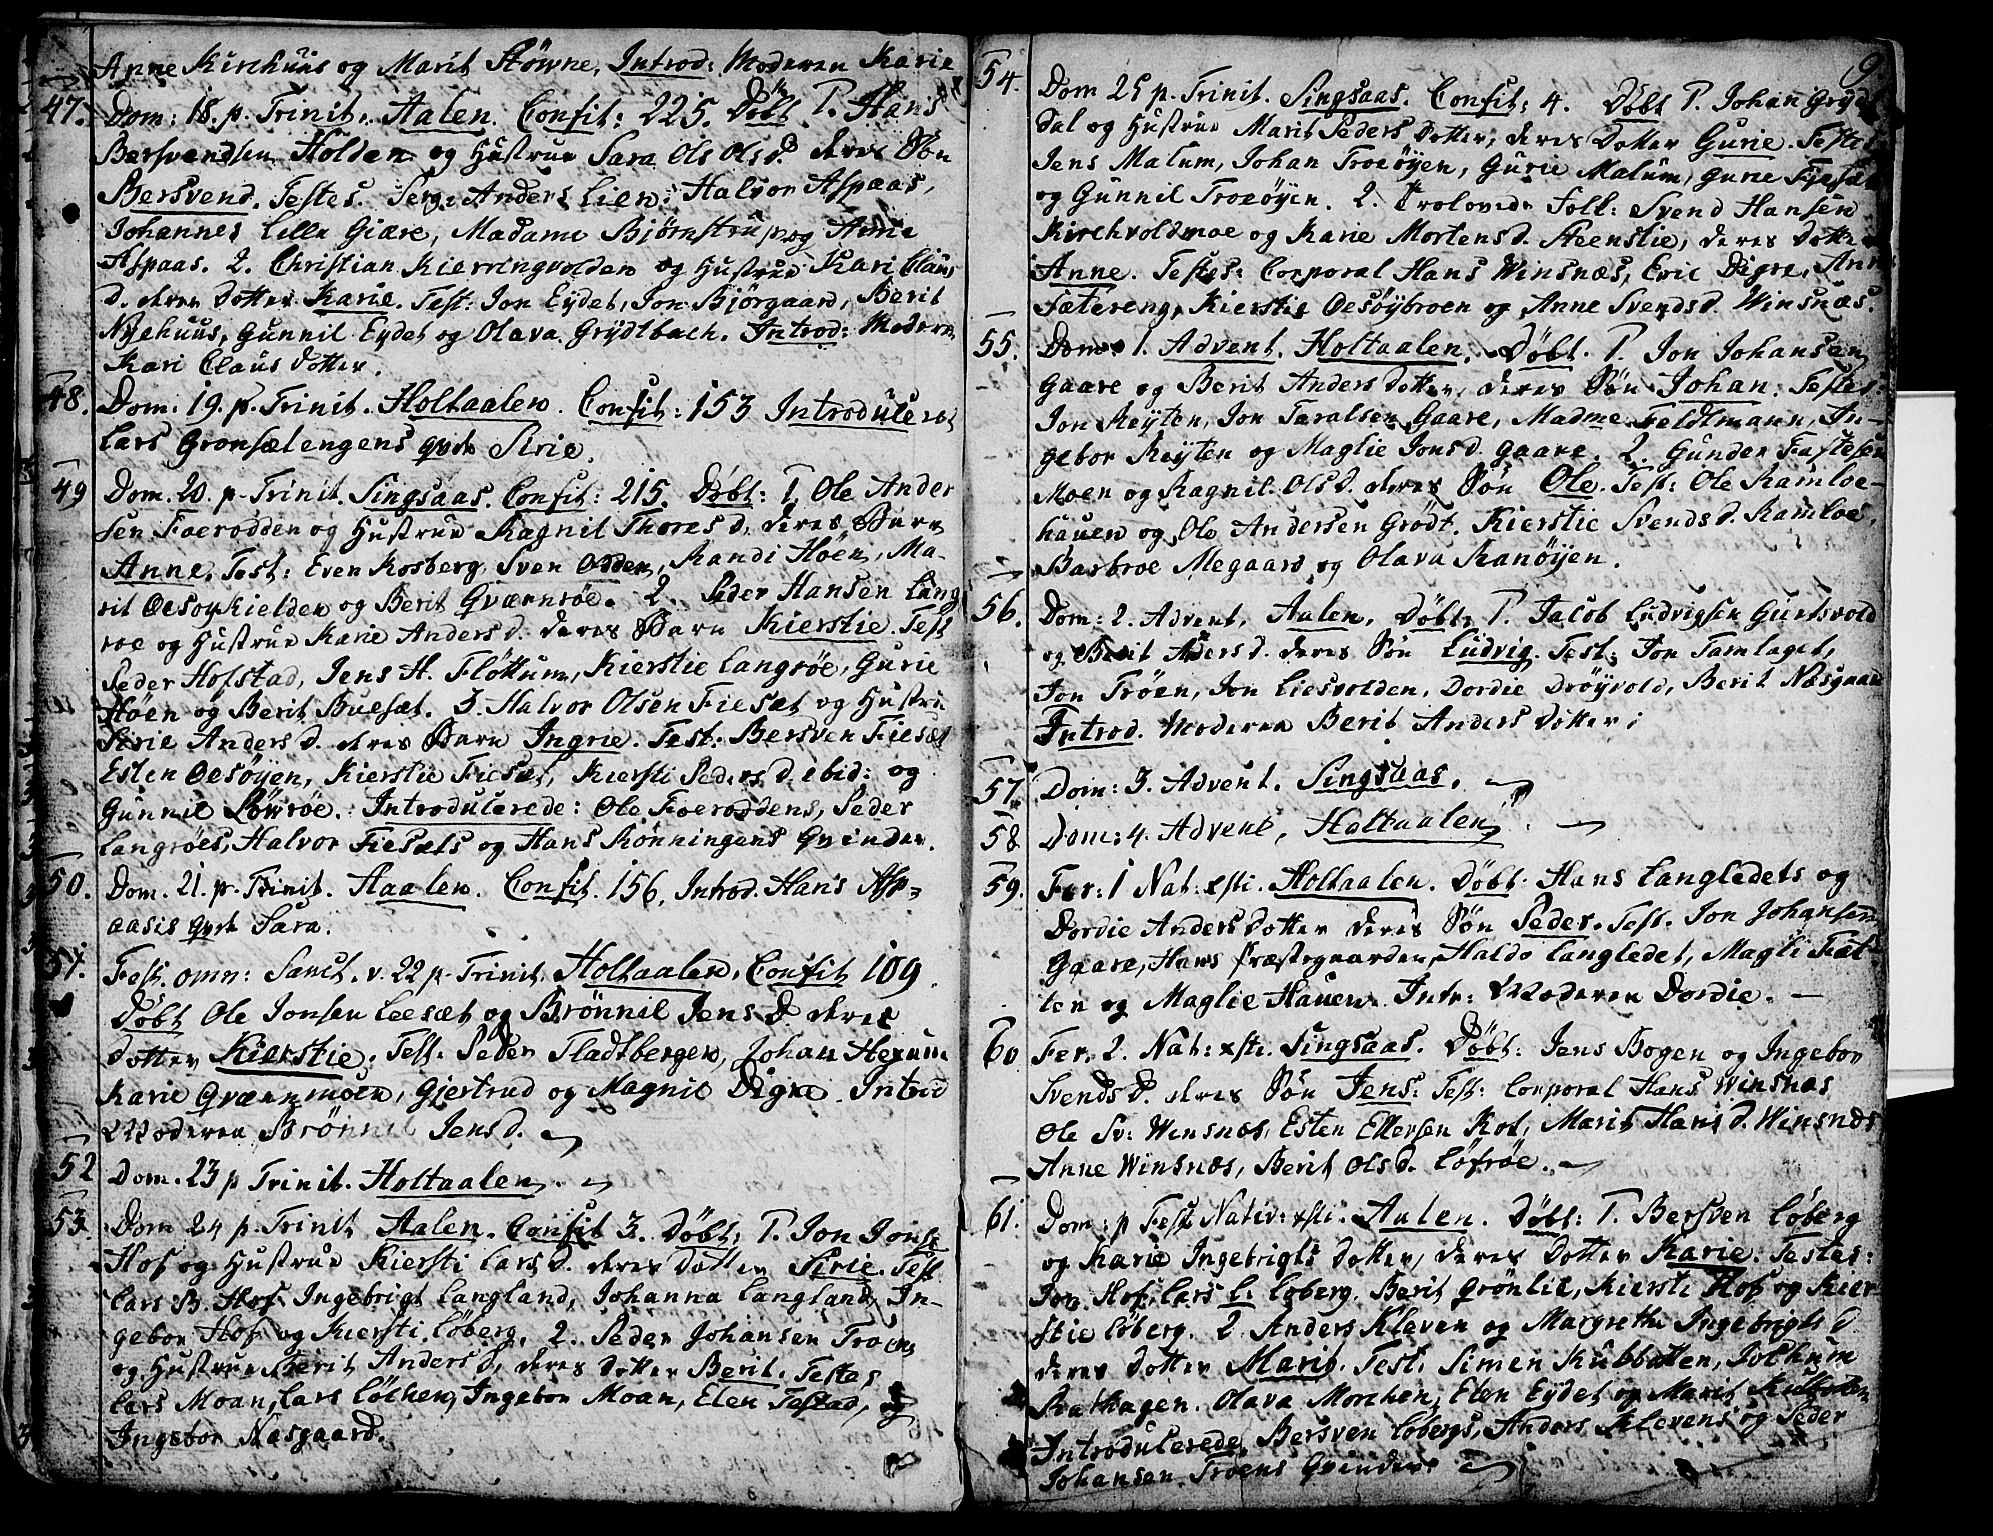 Anne Kirchuus og Marit Støwne, Introd: Moderen Karie
47. Dom: 18. p. Trinit. Aalen. Confit: 225. Døbt 1. Hans
Bersvendsen Holden og Hustrue Sara Ols Olsd. deres Søn
Bersvend. Testes. Serg: Anders Lien, Halvor Aspaas,
Johannes Lille Giære, Madame Bjørnstrup og Anne
Aspaas. 2. Christian Kierringvolden og Hustrue Kari Claus
d. deres Dotter Karie. Test: Jon Eydet, Jon Bjørgaard, Berit
Nyehuus, Gunnil Eydet og Olava Grydtbach. Introd: Moderen
Kari Claus Dotter.
48. Dom. 19. p. Trinit. Holtaalen. Confit: 153 Introducered
Lars Gronsælengens qvde Sirie.
49 Dom. 20. p. Trinit. Singsaas. Confit: 215. Døbt: 1. Ole Ander
sen Foerodden og Hustrue Ragnil Thores d, deres Barn
Anne, Test: Even Rosberg, Sven Odden, Randi Høen, Ma-
rit Oesøykielden og Berit Qværnrøe. 2. Peder Hansen Lang
roe og Hustrue Karie Anders d. deres Barn Kierstie. Test
Peder Hofstad, Jens H. Fløttum, Kierstie Langrøe, Gurie
Høen og Berit Buesæt. 3. Halvor Olsen Fiesæt og Hustru
Sirie Anders d. deres Barn Ingrie. Test: Bersven Fiesæt
Esten Oesøyen, Kierstie Fiesæt, Kiersti Peders d. ibid: og
Gunnil Løwrøe. Introducerede: Ole Foeroddens, Peder
Langrøes, Halvor Fiesæts og Hans Rønningens Qvinder.
50. Dom. 21. p. Trinit. Aaalen. Confit. 156, Introd. Hans Asp-
aasis qvde Sara.
51. Fest. omn: Sanct. v. 22 p. Trinit. Holtaalen, Confit 109.
Døbt Ole Jonsen Leesæt og Brønnil Jens D. deres
Dotter Kierstie. Test: Peder Fladtbergen, Johan Hexum
Karie Qværnmoen, Gjertrud og Magnil Digre. Introd
Moderen Brønnil Jensd.
52 Dom. 23 p Trinit. Holtaalen.
53. Dom 24 p. Trinit Aalen. Confit 3. Døbt: 1. Jon Jonse
Hof og Hustrue Kiersti Lars D. deres Dotter Sirie. Test
Lars B. Hof, Ingebrigt Langland, Johanna Langland, In-
gebor Hof og Kiersti Løberg. 2. Peder Johansen Troen,
og Hustrue Berit Anders D, deres Dotter Berit. Testes
Lars Moan, Lars Løchen, Ingebor Moan, Elen Testad, og
Ingebor Nasgaard.
9
54. Dom 25 p. Trinit. Singsaas. Confit: 4. Døbt 1. Johan Grydt
dal og Hustrue Marit Peders Dotter, deres Dotter Gurie. Testes
Jens Malum, Johan Trozøyen, Gurie Malum, Gurie Fjesæt
og Gunnil Trozøyen. 2. Trolovede Folk: Svend Hansen
Kirchvoldmoe og Karie Mortens d. Steenslie, deres Dotter
Anne. Testes: Corporal Hans Winsnæs, Eric Digre, Anne
Fætereng, Kierstie Oesøybroen og Anne Svends d. Winsnæs.
55. Dom: 1. Advent. Holtaalen. Døbt. 1. Jon Johansen
Gaare og Berit Anders Dotter, deres Søn Johan. Testes:
Jon Reyten, Jon Taralsen Gaare, Madme Feldtmann, In-
gebor Reyten og Maglie Jons d. Gaare. 2. Gunder Fastesen
Moen og Ragnil Ols d. deres Søn Ole. Test: Ole Ramloe-
hauen og Ole Andersen Grødt. Kierstie Svends d. Ramloe,
Barbroe Megaard og Olava Ranøyen.
56. Dom: 2. Advent, Aalen, Døbt, 1. Jacob Ludvigsen Gurtsvold
og Berit Anders d. deres Søn Ludvig. Test: Jon Tamlaget,
Jon Trøen, Jon Liesvolden, Dordie Drøyvold, Berit Næsgaard
Introd. Moderen Berit Anders Dotter;
57 Dom: 3. Advent. Singsaas.
58 Dom: 4. Advent, Holtaalen.
59. Fer: 1 Nat: xsti. Holtaalen. Døbt: Hans Langledets og
Dordie Anders Dotter deres Søn Peder. Test. Jon Johansen
Gaare, Hans Præstegaarden, Haldo Langledet, Magli Fæt-
ten og Maglie Hauen. Intr: Moderen Dordie.
60 Fer. 2. Nat: xsti. Singsaas. Døbt: Jens Bogen og Ingebor
Svends D. deres Søn Jens: Test: Corporal Hans Winsnæs
Ole Sv: Winsnæs, Esten Ellersen Kot, Marit Hans D. Winsnæs
Anne Winsnæs, Berit Ols d. Løfrøe.
61. Dom: p Fest Nativ: xsti. Aalen. Døbt: 1. Bersven Løberg
og Karie Ingebrigts Dotter, deres Dotter Karie. Testes:
Jon Hof, Lars L. Løberg. Berit Grønlie, Kiersti Hof og Kier
stie Løberg. 2 Anders Kleven og Margrethe Ingebrigts d
deres Dotter Marit. Test. Simen Kubbatten, Jochum
Bathagen. Olava Morchen, Elen Eydet og Marit
Introducerede, Bersven Løbergs, Anders Klevens og Peder
Johansen Troens Qvinder.